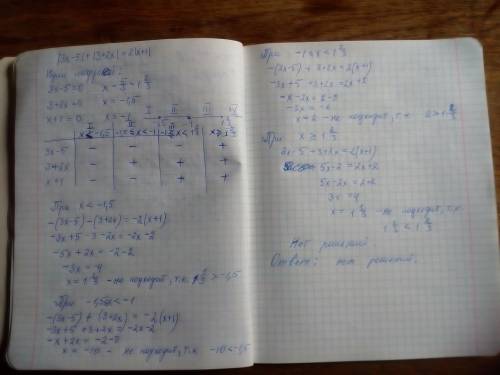 |3x-5|+|3+2x|=2|x+1|
3x-5=0 x=5/3=1 2/3
3+2x=0 x=-1,5
x+1=0 x=-1
I II III IV
x<-1,5 -1,5≤x<-1 -1≤x<1 2/3 x≥1 2/3
3x-5 - - - +
3+2x - + + +
x+1 - - + +
При x<-1,5
-(3x-5)-(3+2x)=-2(x+1)
-3x+5-3-2x=-2x-2
-5x+2x=-2-2
-3x=-4
x=1 1/3 - не подходит, т.к. 1 1/3 > -1,5
При -1,5≤x<-1
-(3x-5)+(3+2x)=-2(x+1)
-3x+5+3+2x=-2x-2
-x+2x=-2-8
x=-10 - не подходит, т.к. -10<-1,5
При -1≤x<1 2/3
-(3x-5)+3+2x=2(x+1)
-3x+5+3+2x=2x+2
-x-2x=2-8
-3x=-6
x=2 - не подходит, т.к. 2>1 2/3
При x≥1 2/3
3x-5+3+2x=2(x+1)
5x-2=2x+2
5x-2x=2+2
3x=4
x=1 1/3 - не подходит, т.к.
1 1/3<1 2/3
Нет решений
Ответ: нет решений.